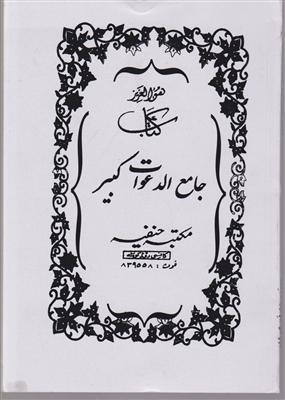 هو العزیز
کتاب
جامع الدعوات کبیر
مکتبه حنفیه
فون : ۸۳۹۵۵۸